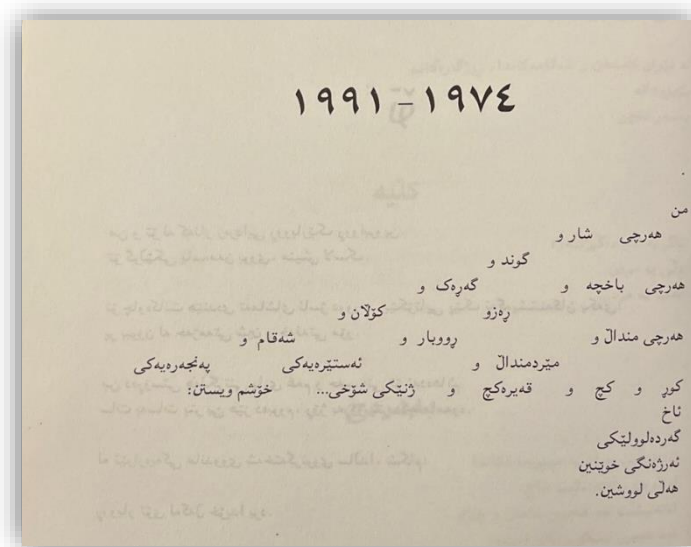 ١٩٧٤ – ١٩٩١
.
من
هەرچی شار و
گوند و
هەرچی باخچە و گەڕەک و
ڕەزو کۆڵان و
هەرچی منداڵ و ڕووبار و شەقام و
مێردمنداڵ و ئەستێرەیەکی پەنجەرەیەکی
کوڕ و کچ و قەیرەکچ و ژنێکی شۆخی... خۆشم ویستن:
ئاخ
گەردەلوولێکی
ئەرژەنگی خوێنین
هەڵی لووشین.